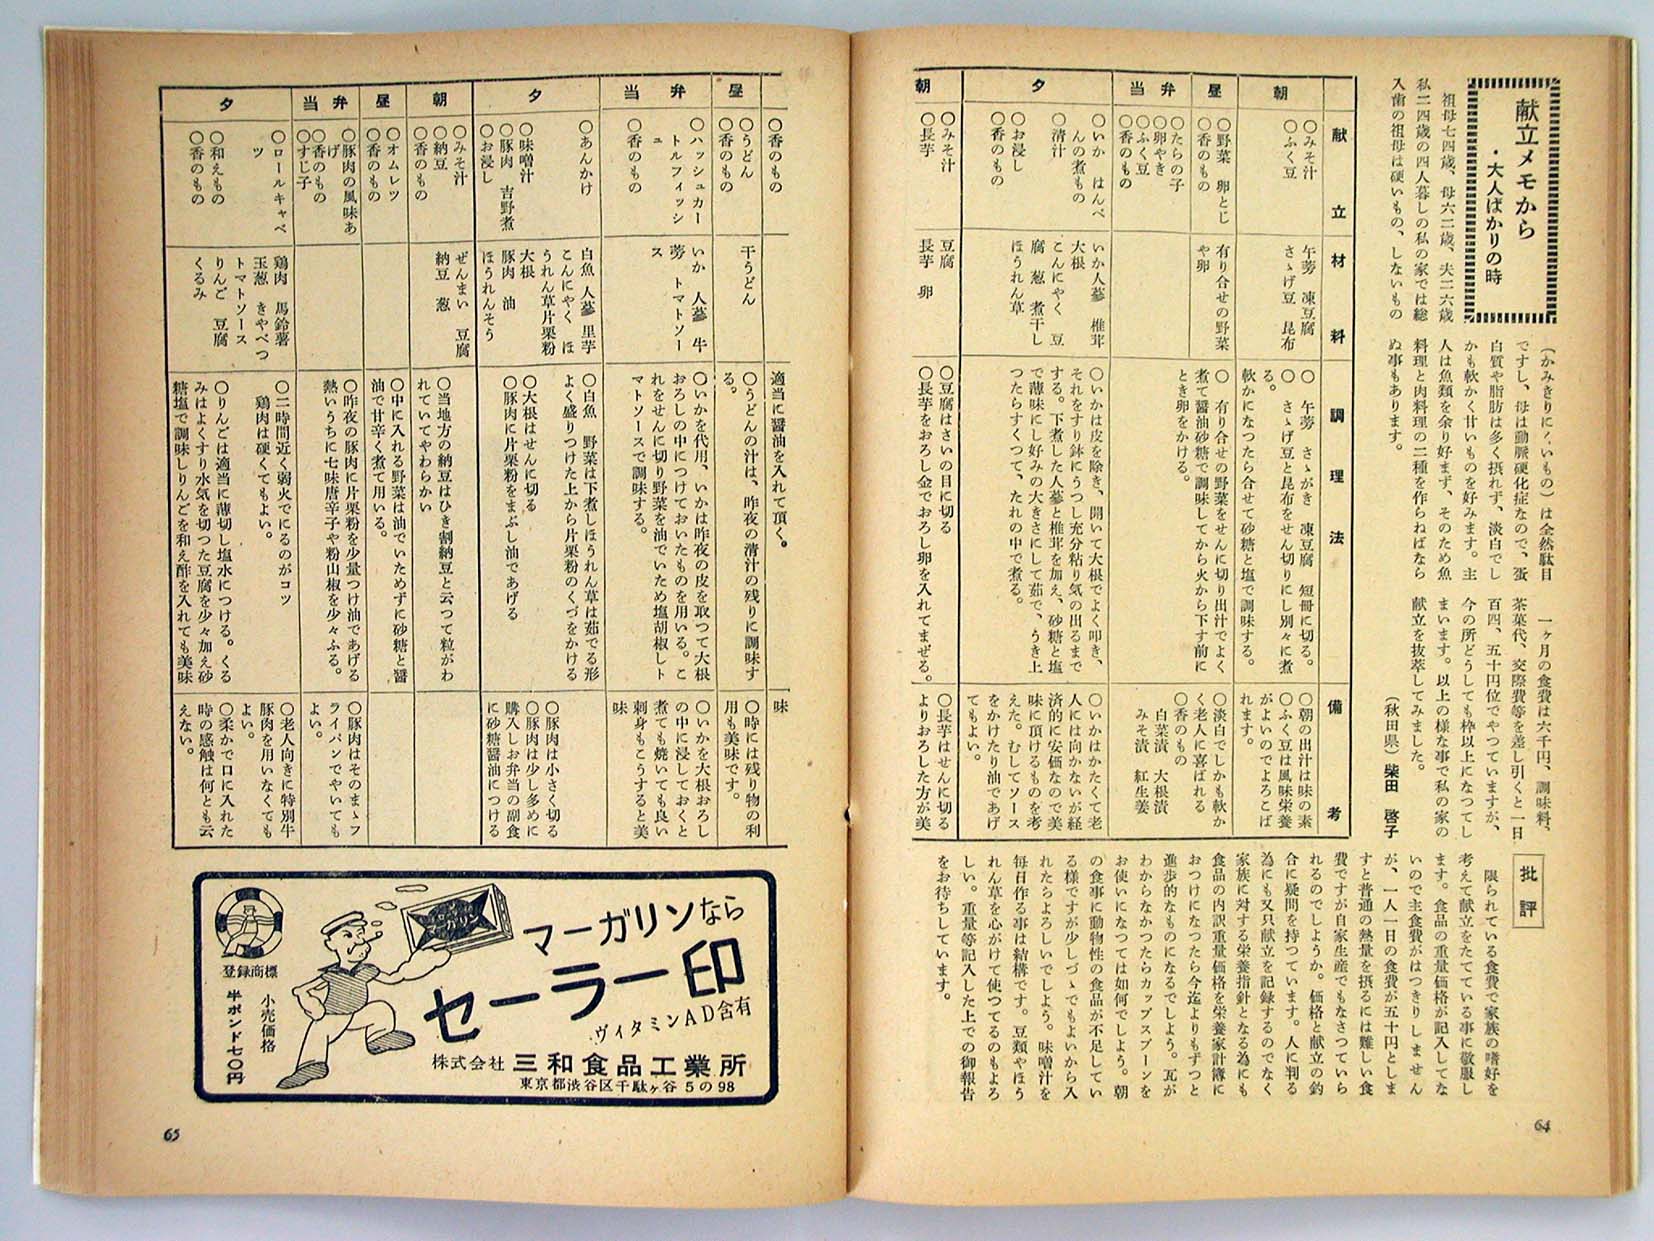 献立メモから
・大人ばかりの時
祖母七四歳、母六二歳、夫二六歳
私二四歳の四人暮しの私の家では総
入歯の祖母は硬いもの、しないもの
(かみきりにくいもの)は全然駄目
ですし、母は動脈硬化症なので、蛋
白質や脂肪は多く摂れず、淡白でし
かも軟かく甘いものを好みます。主
人は魚類を余り好まず、そのため魚
料理と肉料理の二種を作らねばなら
ぬ事もあります。
一ヶ月の食費は六千円、調味料、
茶菓代、交際費等を差し引くと一日
百四、五十円位でやつていますが、
今の所どうしても枠以上になつてし
まいます。以上の様な事で私の家の
献立を抜萃してみました。
(秋田県) 柴田 啓子
献立
材料
調理法
備考
朝
○みそ汁
○ふく豆
午蒡 凍豆腐
さゝげ豆 昆布
○午蒡 さゝがき 凍豆腐 短冊に切る。
○さゝげ豆と昆布をせん切りにし別々に煮
軟かになつたら合せて砂糖と塩で調味する。
る。
○朝の出汁は味の素
○ふく豆は風味栄養
がよいのでよろこば
れます。
昼
○野菜 卵とじ
○香のもの
有り合せの野菜
や卵
○有り合せの野菜をせんに切り出汁でよく
煮て醤油砂糖で調味してから火から下す前に
とき卵をかける。
○淡白でしかも軟か
く老人に喜ばれる
弁当
○たらの子
○卵やき
○ふく豆
○香のもの
○香のもの
白菜漬 大根漬
みそ漬 紅生姜
夕
○いか はんぺ
んの煮もの
○清汁
○お浸し
○香のもの
いか人蔘 椎茸
大根
こんにやく 豆
腐 葱 煮干し
ほうれん草
○いかは皮を除き、開いて大根でよく叩き、
それをすり鉢にうつし充分粘り気の出るまで
する。下煮した人蔘と椎茸を加え、砂糖と塩
で薄味にし好みの大きさにして茹で、うき上
つたらすくつて、たれの中で煮る。
○いかはかたくて老
人には向かないが経
済的に安価なので美
味に頂けるものを考
えた。むしてソース
をかけたり油であげ
てもよい。
朝
○みそ汁
○長芋
豆腐
長芋 卵
○豆腐はさいの目に切る
○長芋をおろし金でおろし卵を入れてまぜる。
○長芋はせんに切る
よりおろした方が美
批評
限られている食費で家族の嗜好を
考えて献立をたてている事に敬服し
ます。食品の重量価格が記入してな
いので主食費がはつきりしません
が、一人一日の食費が五十円としま
すと普通の熱量を摂るには難しい食
費ですが自家生産でもなさつていら
れるのでしようか。価格と献立の釣
合に疑問を持つています。人に判る
為にも又只献立を記録するのでなく
家族に対する栄養指針となる為にも
食品の内訳重量価格を栄養家計簿に
おつけになつたら今迄よりもずつと
進歩的なものになるでしよう。瓦が
わからなかつたらカップスプーンを
お使いになつては如何でしよう。朝
の食事に動物性の食品が不足してい
る様ですが少しづゝでもよいから入
れたらよろしいでしよう。味噌汁を
毎日作る事は結構です。豆類やほう
れん草を心がけて使つてるのもよろ
しい。重量等記入した上での御報告
をお待ちしています。
64
○香のもの
適当に醤油を入れて頂く。
味
昼
○うどん
○香のもの
干うどん
○うどんの汁は、昨夜の清汁の残りに調味す
る。
○時には残り物の利
用も美味です。
弁当
○ハッシュカー
トルフィッシ
ュ
○香のもの
いか 人蔘 牛
蒡 トマトソー
ス
○いかを代用、いかは昨夜の皮を取つて大根
おろしの中につけておいたものを用いる。こ
れをせんに切り野菜を油でいため塩胡椒しト
マトソースで調味する。
○いかを大根おろし
の中に浸しておくと
煮ても焼いても良い
刺身もこうすると美
味
夕
○あんかけ
○味噌汁
○豚肉 吉野煮
○お浸し
白魚 人蔘 里芋
こんにやく ほ
うれん草片栗粉
大根
豚肉 油
ほうれんそう
○白魚 野菜は下煮しほうれん草は茹でる形
よく盛りつけた上から片栗粉のくづをかける
○大根はせんに切る
○豚肉に片栗粉をまぶし油であげる
○豚肉は小さく切る
○豚肉は少し多めに
購入しお弁当の副食
に砂糖醤油につける
朝
○みそ汁
○納豆
○香のもの
ぜんまい 豆腐
納豆 葱
○当地方の納豆はひき割納豆と云つて粒がわ
れていてやわらかい
昼
○オムレツ
○香のもの
○中に入れる野菜は油でいためずに砂糖と醤
油で甘辛く煮て用いる。
弁当
○豚肉の風味あ
げ
○香のもの
○すじ子
○昨夜の豚肉に片栗粉を少量つけ油であげる
熱いうちに七味唐辛子や粉山椒を少々ふる。
○豚肉はそのまゝフ
ライパンでやいても
よい。
夕
○ロールキャベ
ツ
○和えもの
○香のもの
鶏肉 馬鈴薯
玉葱 きやべつ
トマトソース
りんご 豆腐
くるみ
○二時間近く弱火でにるのがコツ
鶏肉は硬くてもよい。
○りんごは適当に薄切し塩水につける。くる
みはよくすり水気を切つた豆腐を少々加え砂
糖塩で調味しりんごを和え酢を入れても美味
○老人向きに特別牛
豚肉を用いなくても
よい。
○柔かで口に入れた
時の感触は何とも云
えない。
マーガリンなら
セーラー印
ヴィタミンAD含有
株式会社 三和食品工業所
東京都渋谷区千駄ヶ谷5の98
登録商標
小売価格
半ポンド七〇円
65